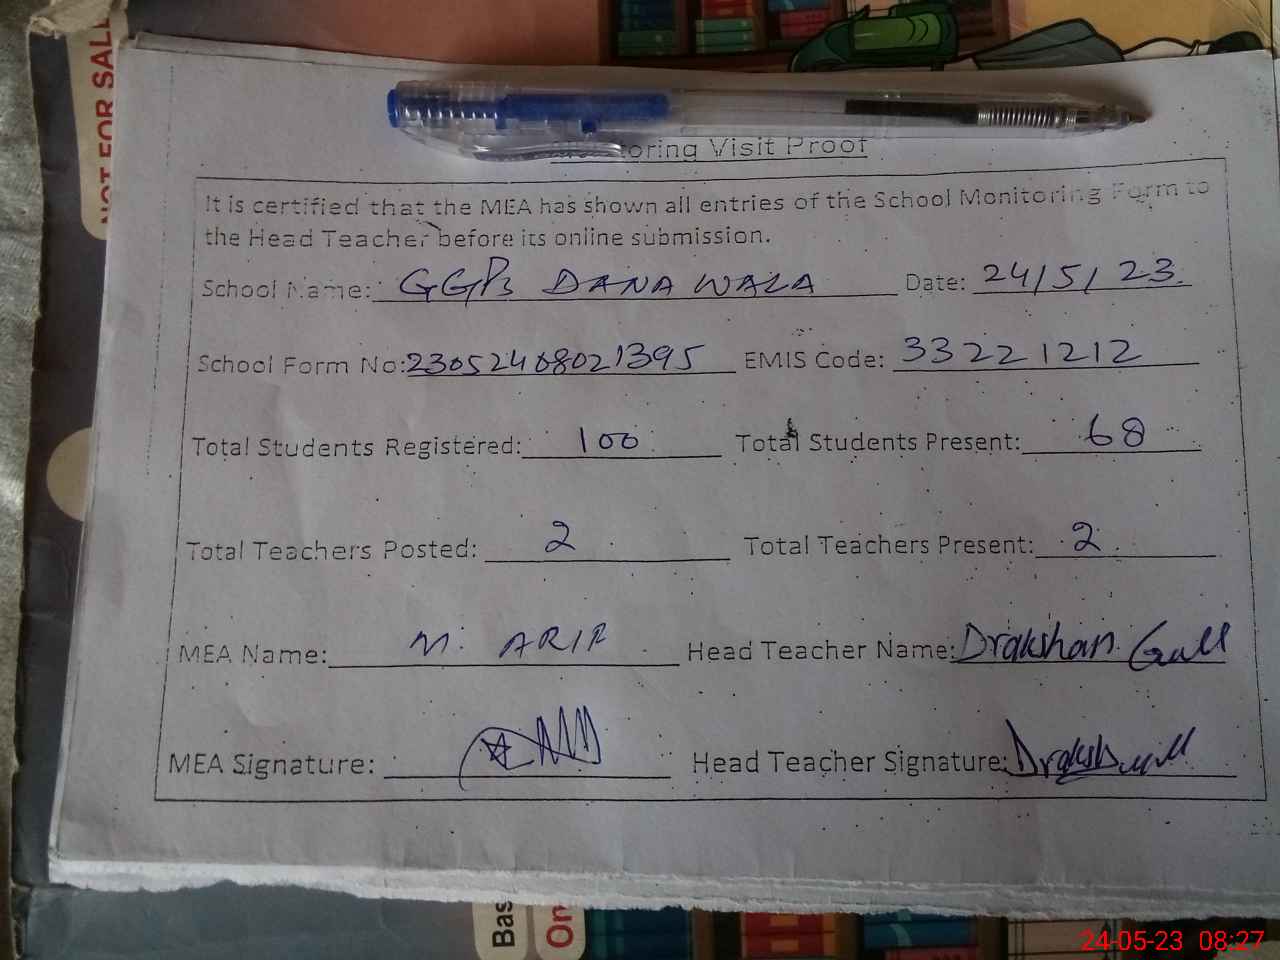 NOT FOR SAL
Monitoring Visit Proof
It is certified that the MEA has shown all entries of the School Monitoring Form to
the Head Teacher before its online submission.
School Name: GGPS DANA WALA Date: 24/5/23.
School Form No: 23052408021395 EMIS Code: 33221212
Total Students Registered: 100 Total Students Present: 68
Total Teachers Posted: 2 Total Teachers Present: 2
MEA Name: M. ARIF Head Teacher Name: Drakshan Gull
MEA Signature: Head Teacher Signature:
Bas
On
24-05-23 08:27